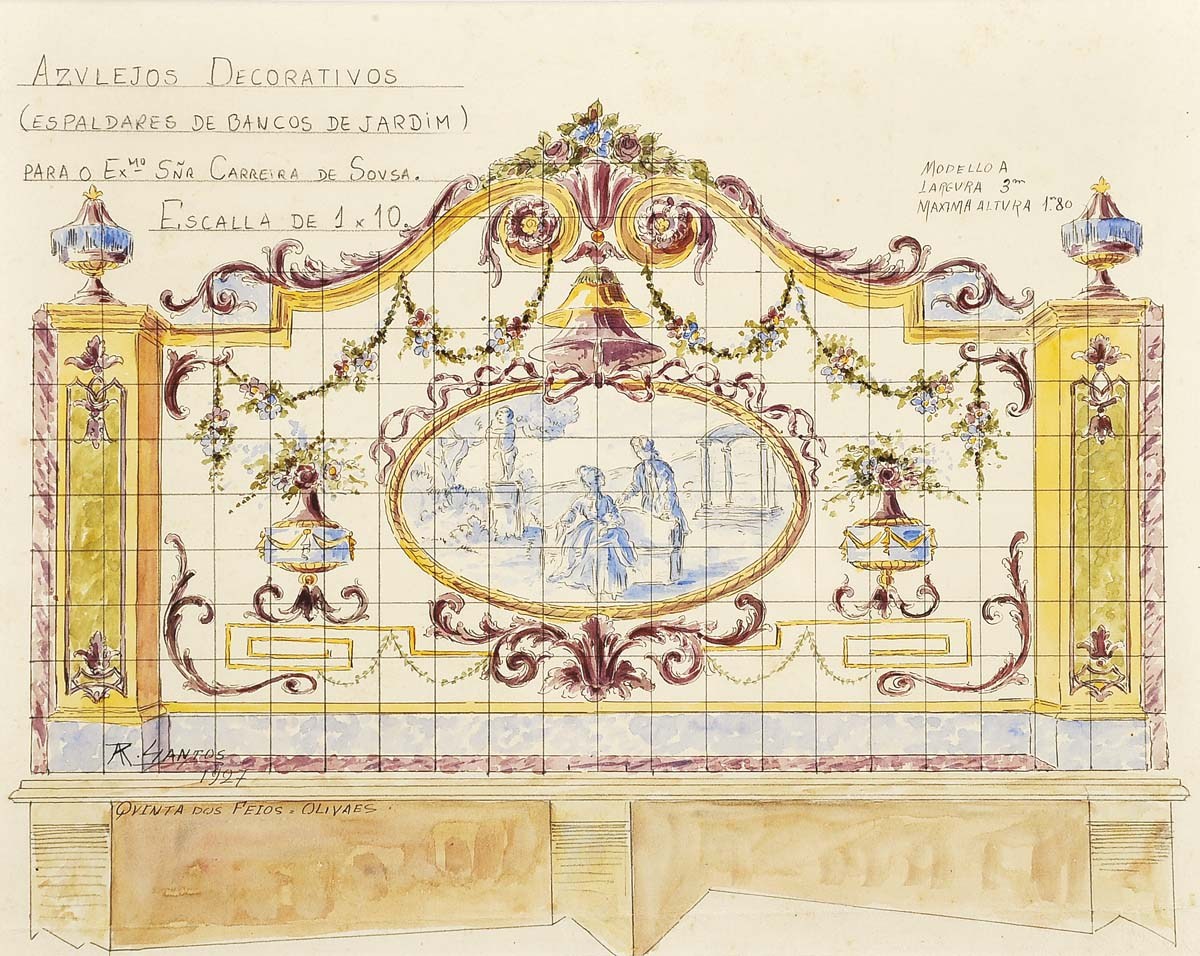 AZVLEJOS DECORATIVOS
(ESPALDARES DE BANCOS DE JARDIM)
PARA O EXMO SÑR CARREIRA DE SOVSA.
ESCALLA DE 1 x 10.
MODELLO A
LARGVRA 3m
MAXIMA ALTVRA 1m80
R. SANTOS
1927
QVINTA DOS FEIOS - OLIVAES.